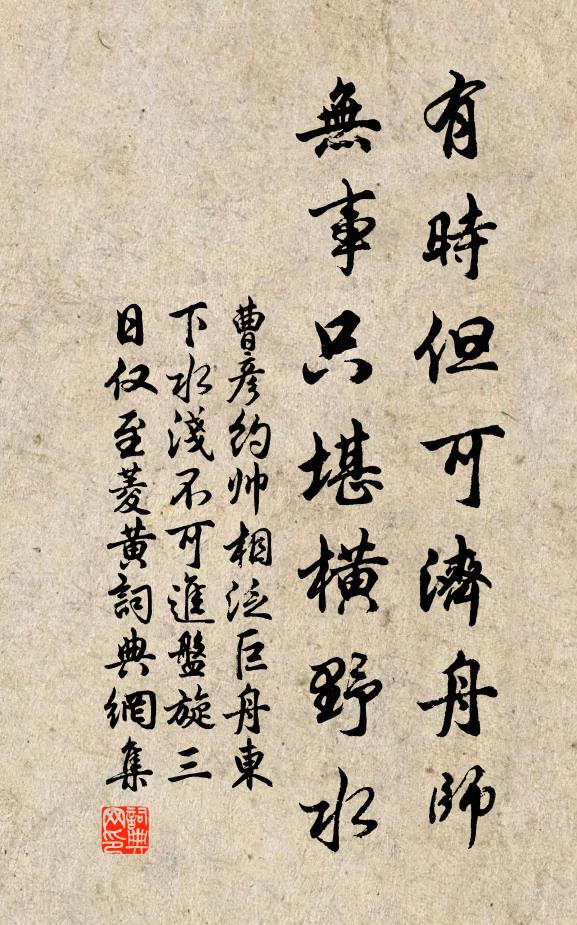 有時但可濟舟師
無事只堪橫野水
曹彥約帅相泛巨舟東
下水淺不可進盤旋三
日仅至菱黄詞典網集
詞典网印